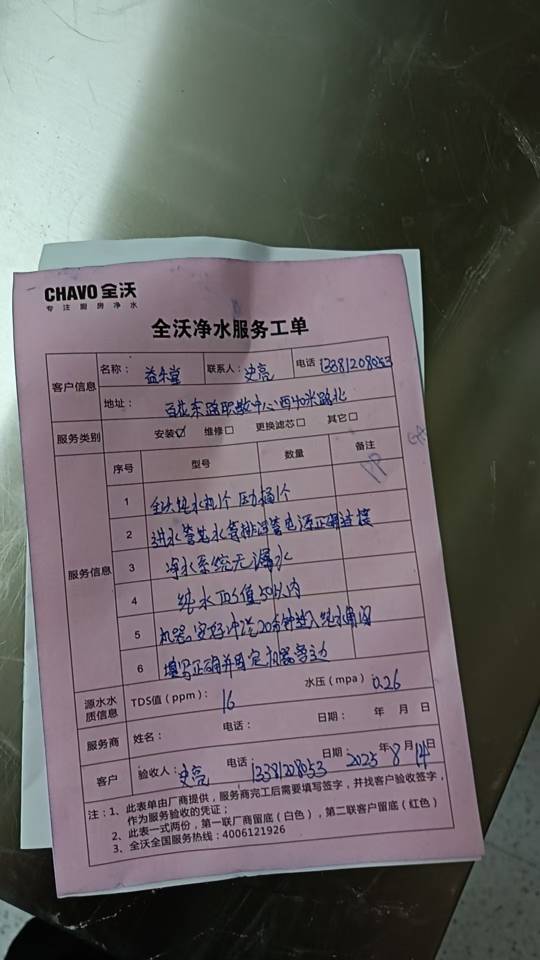 CHAVO 全沃
专注厨房净水
全沃净水服务工单
客户信息
名称： 益禾堂 联系人： 史亮 电话 13381208053
地址： 百花东路职教中心西40米路北
服务类别 安装☑ 维修□ 更换滤芯□ 其它□
服务信息
序号 型号 数量 备注
1 全沃纯水机1个 压力桶1个
2 进水管纯水管排污管电源正确连接
3 净水系统无漏水
4 纯水TDS值50以内
5 机器安好冲洗20分钟进入纯水
6 填写正确并固定机器旁边
源水水质信息 TDS值（ppm）： 16 水压（mpa） 0.26
服务商 姓名： 电话： 日期： 年 月 日
客户 验收人： 史亮 电话 13381208053 日期： 2025年8月14日
注：1、此表单由厂商提供，服务商完工后需要填写签字，并找客户验收签字，
作为服务验收的凭证；
2、此表一式两份，第一联厂商留底（白色），第二联客户留底（红色）
3、全沃全国服务热线：4006121926